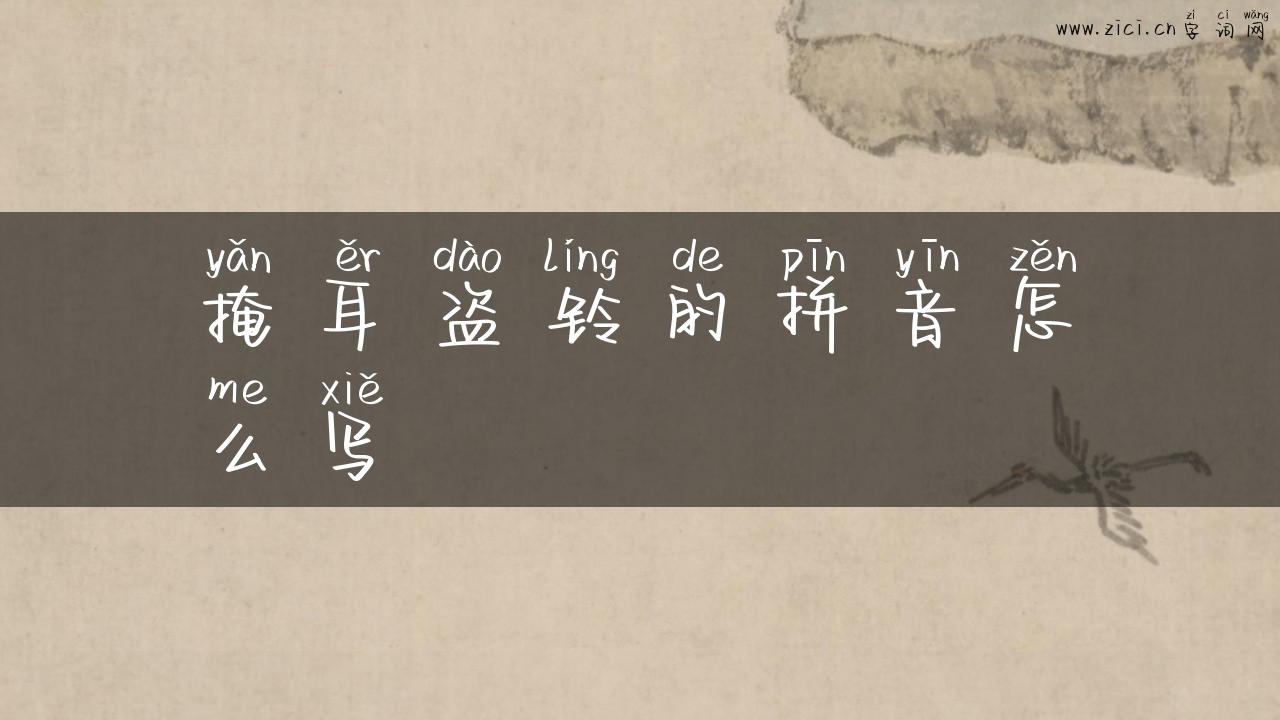 zì cí wǎng
www.zici.cn 字 词 网
yǎn ěr dào líng de pīn yīn zěn
掩 耳 盗 铃 的 拼 音 怎
me xiě
么 写